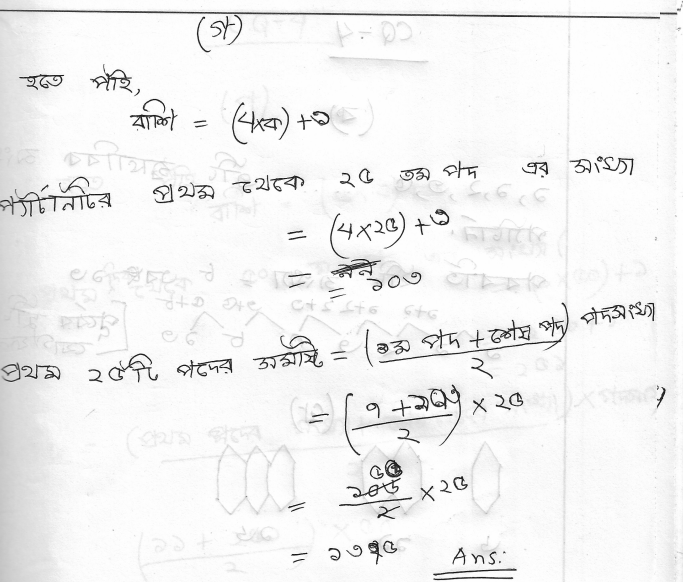 (গ)
হতে পাই,
রাশি = (4×ক) + ৩
প্যাটার্নটির প্রথম থেকে ২৫ তম পদ এর সংখ্যা
= (4×২৫) + ৩
=
= ১০৩
প্রথম ২৫টি পদের সমষ্টি = (১ম পদ + শেষ পদ) পদসংখ্যা
২
= (৭ + ১০৩) × ২৫
২
= ৫৫ × ২৫
২
= ১৩৭৫ Ans: